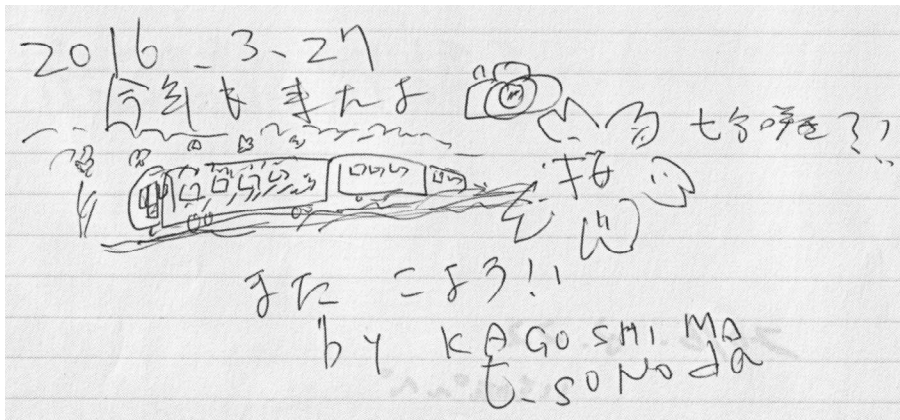 2016.3.27
今年も来たよ
桜
七分咲き??
またこよう!!
by KAGOSHIMA
t-soNoda